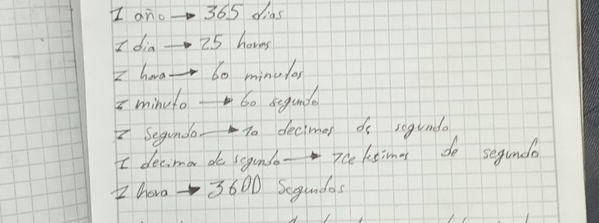 1 año → 365 dias
1 dia → 25 horas
1 hora → 60 minutos
1 minuto → 60 segundo
1 Segundo → 10 decimas de segundo
1 decima de segundo → de segundo
1 hora → 3600 Segundos